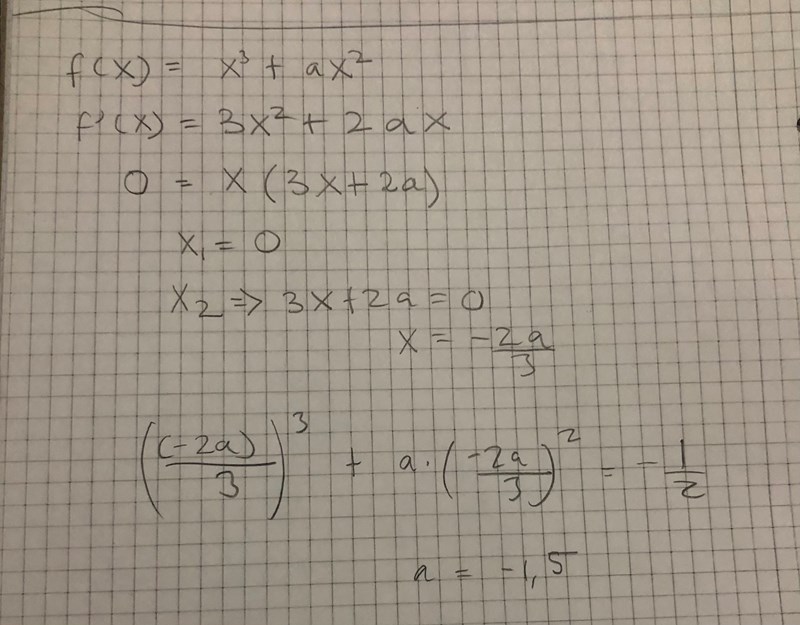 f(x) = x³ + ax²
f'(x) = 3x² + 2ax
0 = x(3x+2a)
x₁ = 0
x₂ => 3x+2a = 0
x = -2a/3
((-2a)/3)³ + a·(-2a/3)² = -1/2
a = -1,5